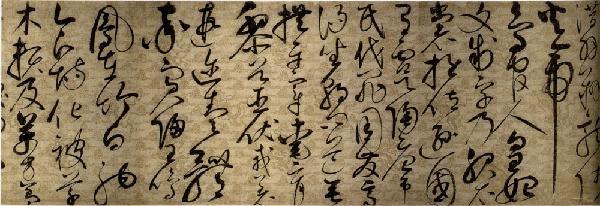 淡鱗羽翔龍師
火帝
鳥官人皇始
制文字乃服衣
裳推位遜國
有虞陶唐弔
民伐罪周發商
湯坐朝問道垂
拱平章愛育
黎首臣伏戎羌
遐邇壹體
率賓歸王鳴
鳳在竹白駒
食場化被草
木賴及萬方蓋